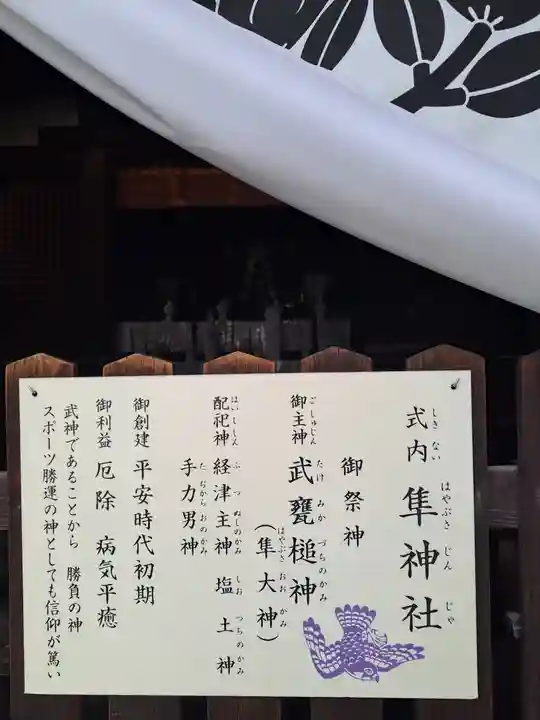 式内 隼神社
しきない はやぶさ じん じゃ
御祭神
御主神 武甕槌神
ごしゅじん たけ みか づちのかみ
(隼大神)
はやぶさ おお かみ
配祀神 経津主神 塩土神
はいししん ふつ ぬしのかみ しお つちのかみ
手力男神
たぢからおのかみ
御創建 平安時代初期
御利益 厄除 病気平癒
武神であることから 勝負の神
スポーツ勝運の神としても信仰が篤い